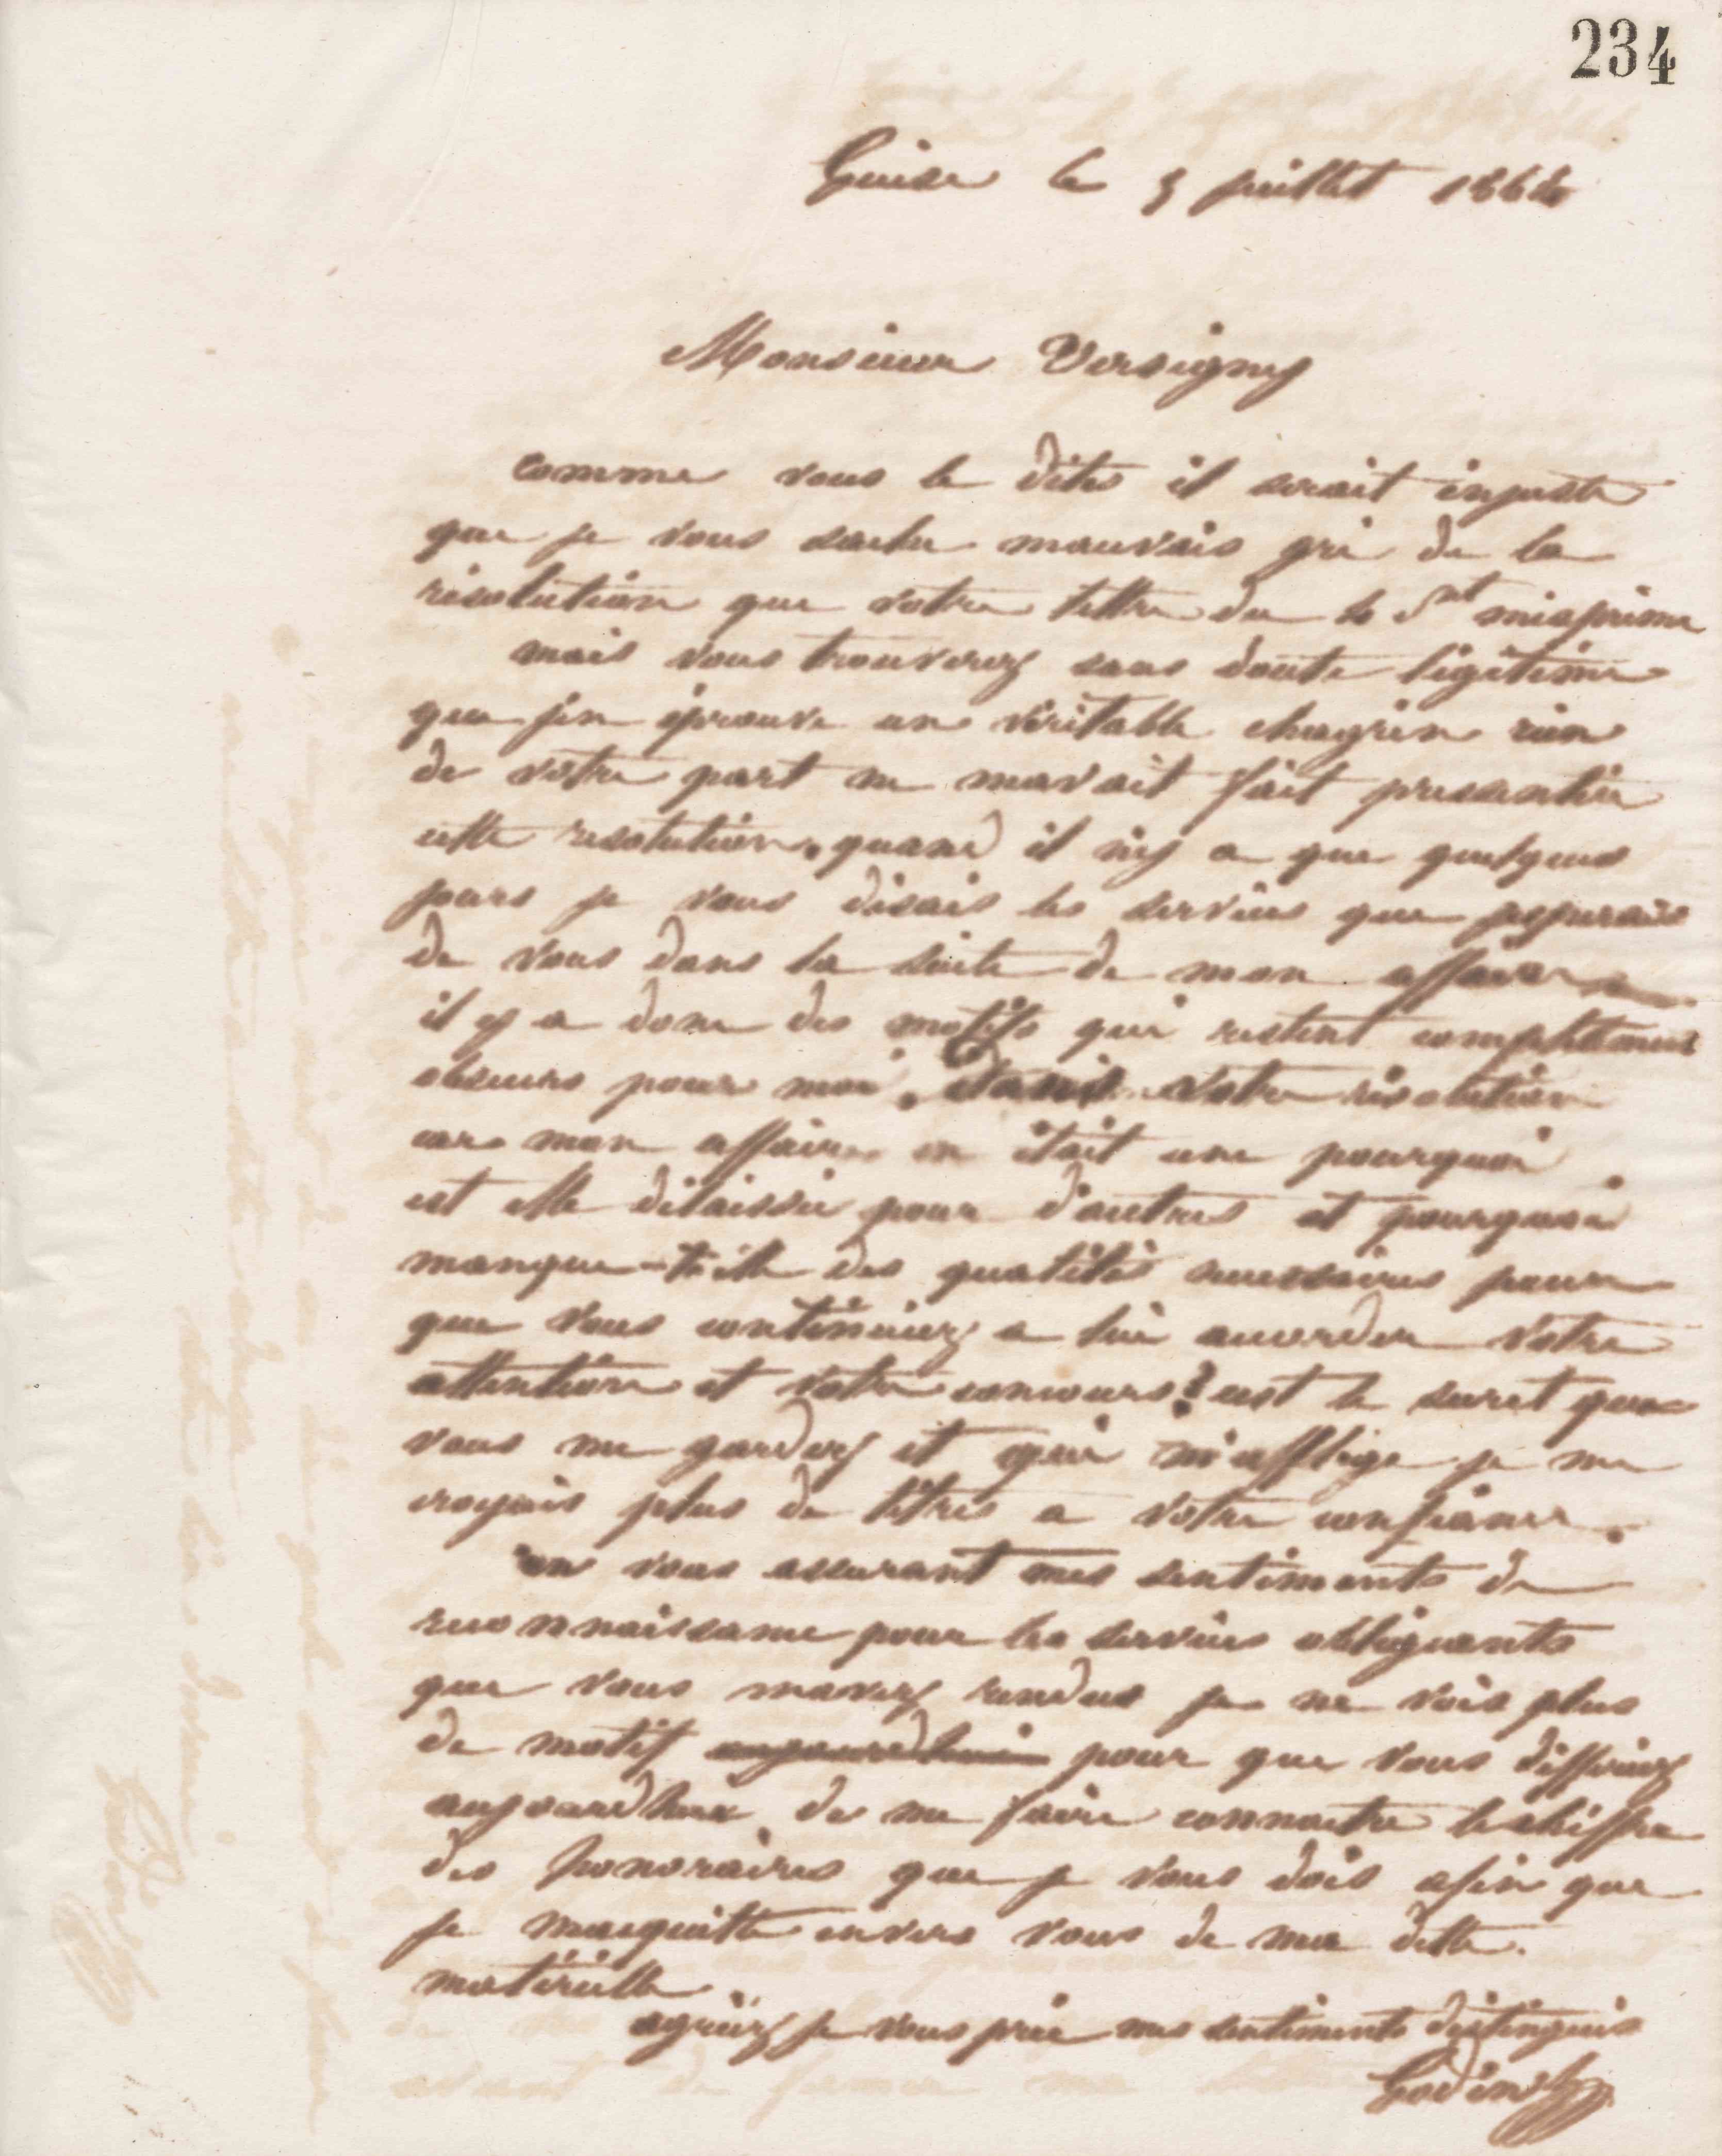 234
Guise le 5 juillet 1864
Monsieur Versigny
comme vous le dites il serait injuste
que je vous sache mauvais gré de la
résolution que votre lettre du
mais vous trouverez sans doute légitime
que j'en éprouve un véritable chagrin rien
de votre part ne mavait fait pressentir
cette resolution. quand il n'y a que quelques
jours je vous disais les services que jesperais
de vous dans la suite de mon affaire
il y a donc des motifs qui restent complètement
obscurs pour moi. dans votre résolution
car mon affaire en était une pourquoi
est elle délaissée pour d'autres et pourquoi
manque-t-elle des qualités necessaires pour
que vous continuiez a lui accorder votre
attention et votre concours? cest le secret que
vous me gardez et qui m'afflige je me
croyais plus de titres a votre confiance.
en vous assurant mes sentiments de
reconnaissance pour les services obligeants
que vous mavez rendus je ne vois plus
de motif aujourdhui pour que vous differiez
aujourdhui de me faire connaitre le chiffre
des honoraires que je vous dois afin que
je macquitte envers vous de ma dette
matérielle
agréez je vous prie mes sentiments distingués
Godin